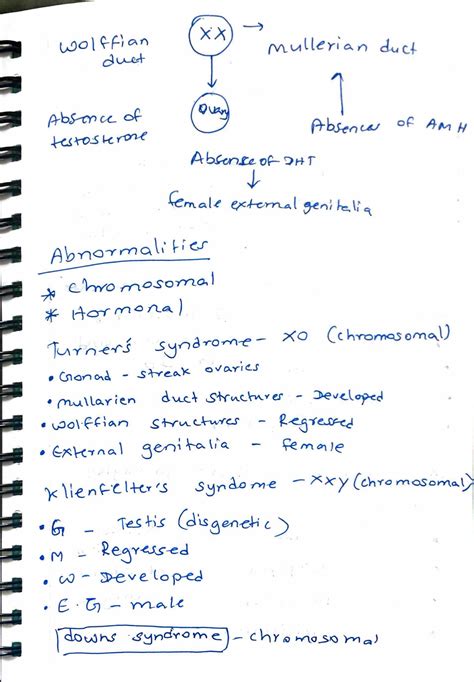 XX
Wolffian duct
Mullerian duct
Ovary
Absence of testosterone
Absence of AMH
Absense of DHT
female external genitalia
Abnormalities
* Chromosomal
* Hormonal
Turner's syndrome - XO (chromosomal)
• Gonad - streak ovaries
• mullarien duct structures - Developed
• wolffian structures - Regressed
• External genitalia - female
Klienfelter's syndome - XXY (chromosomal)
• G - Testis (disgenetic)
• M - Regressed
• W - Developed
• E.G - male
downs syndrome - chromosomal